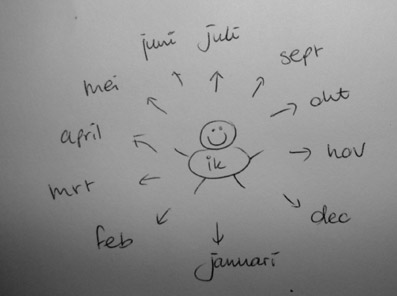 juni
juli
sept
mei
okt
april
ik
nov
mrt
dec
feb
januari